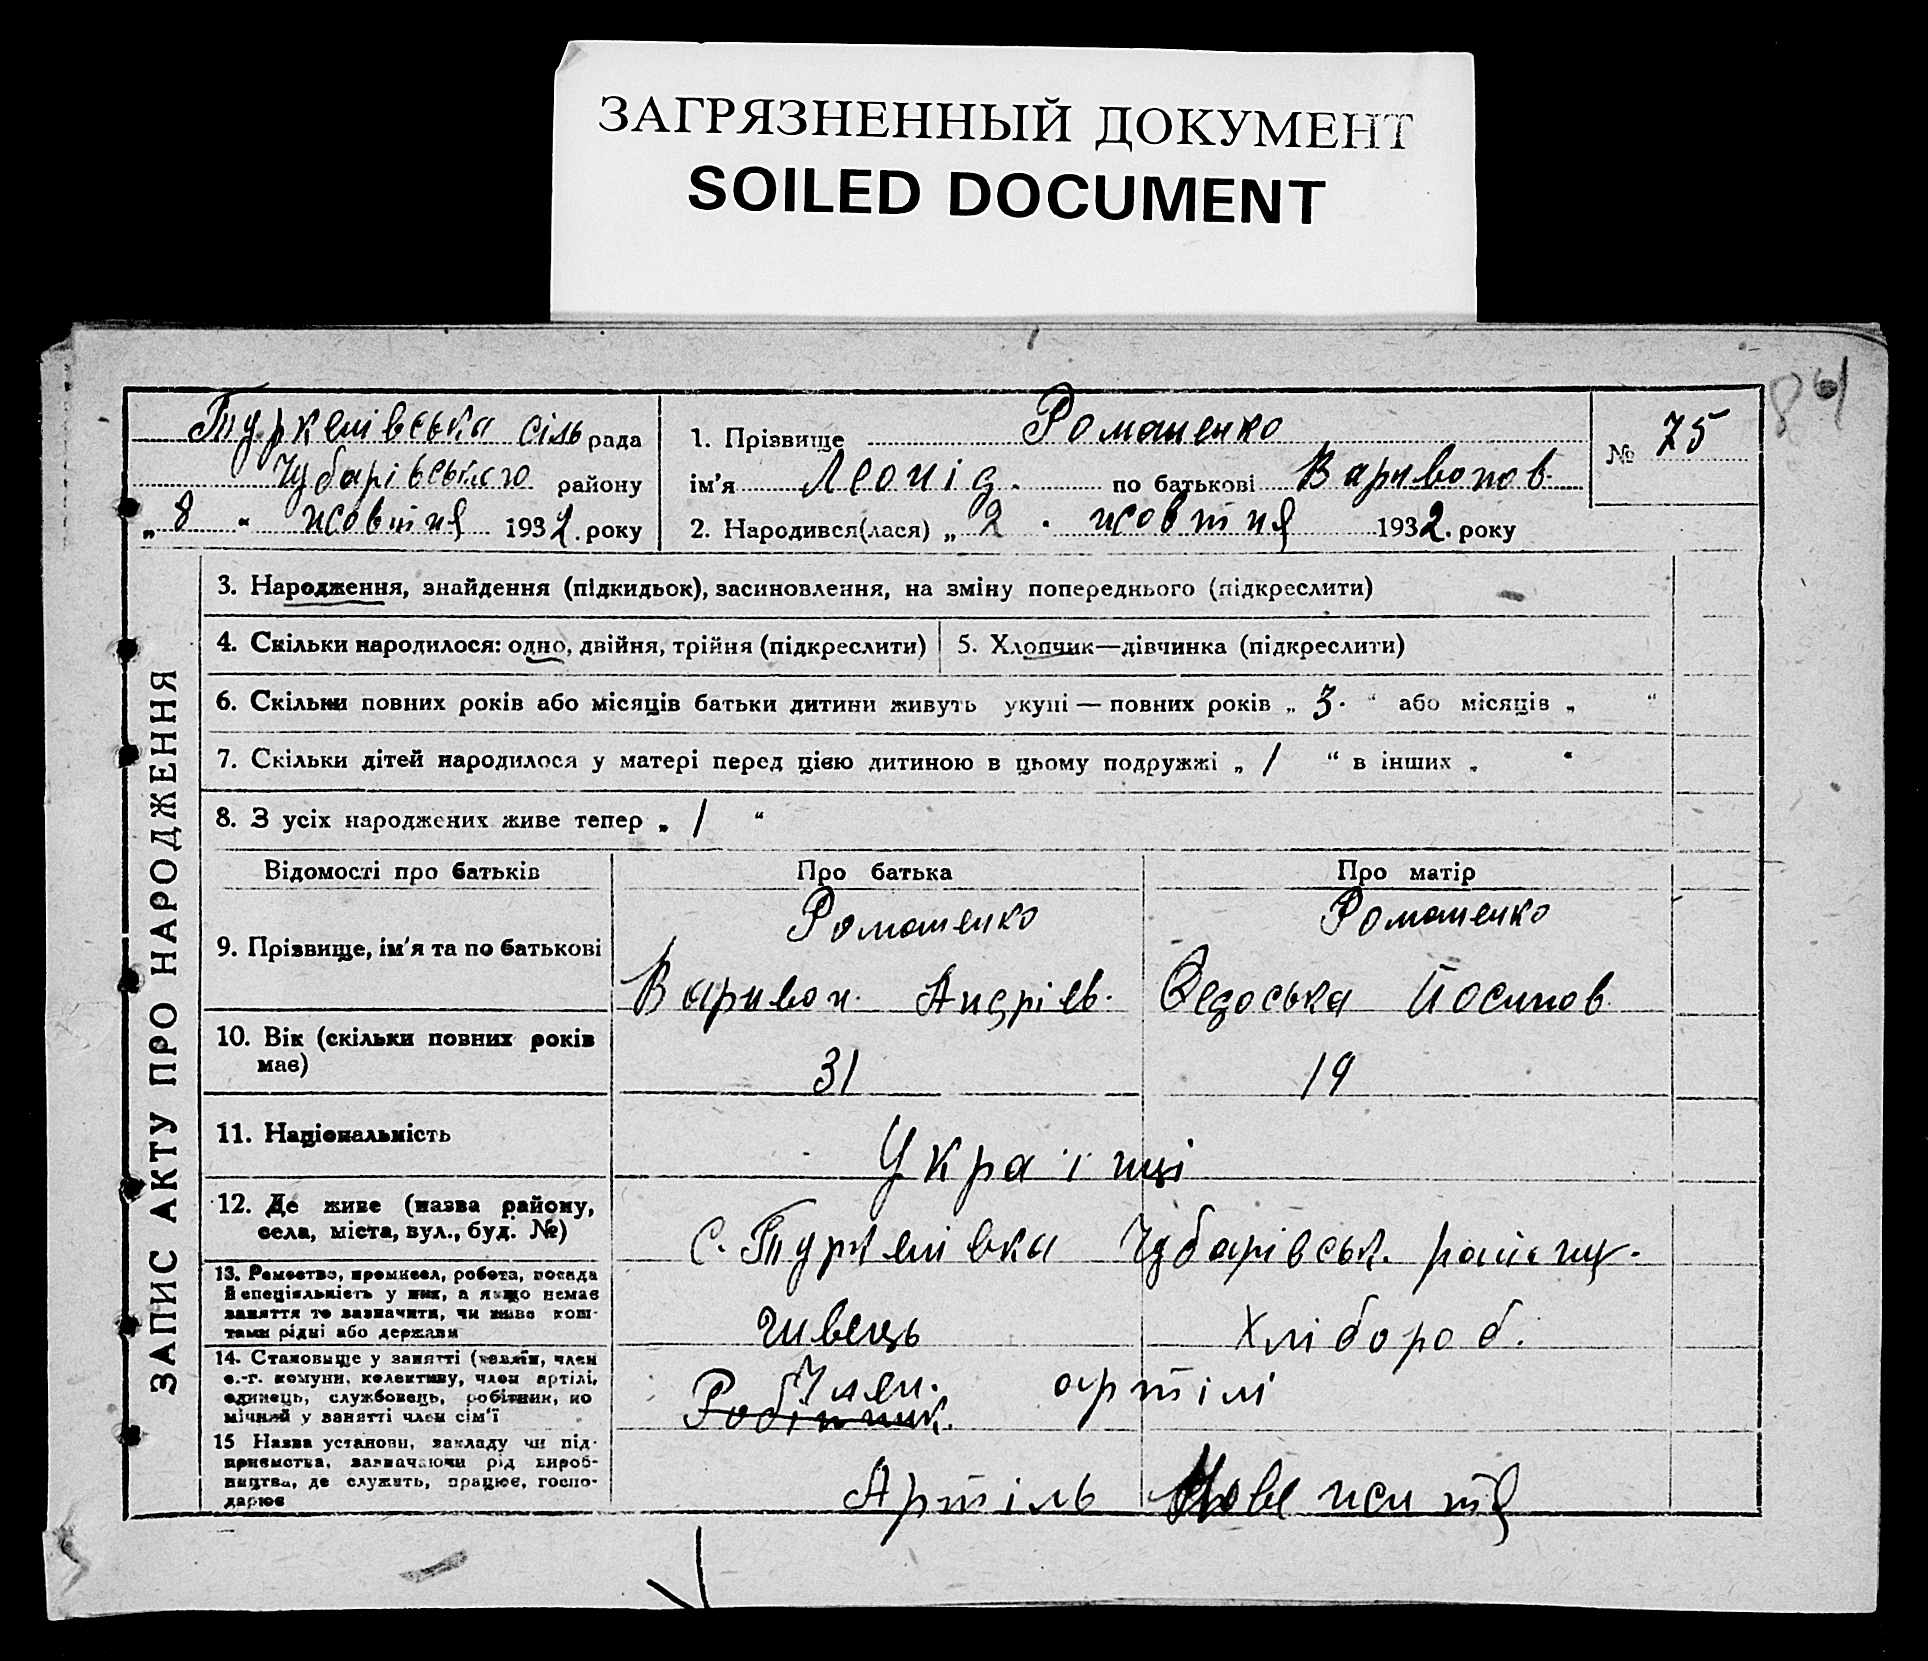 ЗАГРЯЗНЕННЫЙ ДОКУМЕНТ
SOILED DOCUMENT
84
Туркенівська сіль рада
Чубарівського району
„ 8 “ жовтня 1932. року
1. Прізвище Романенко
ім'я Леонід. по батькові Варивонов.
2. Народився(лася) „ 2 “ жовтня 1932. року
№ 75
ЗАПИС АКТУ ПРО НАРОДЖЕННЯ
3. Народження, знайдення (підкидьок), засиновлення, на зміну попереднього (підкреслити)
4. Скільки народилося: одно, двійня, трійня (підкреслити)
5. Хлопчик—дівчинка (підкреслити)
6. Скільки повних років або місяців батьки дитини живуть укупі — повних років „ 3. “ або місяців „ “
7. Скільки дітей народилося у матері перед цією дитиною в цьому подружжі „ 1 “ в інших „ “
8. З усіх народжених живе тепер „ 1 “
Відомості про батьків
Про батька
Про матір
9. Прізвище, ім'я та по батькові
Романенко
Варивон. Андрієв.
Романенко
Федоська Йосипов.
10. Вік (скільки повних років
має)
31
19
11. Національність
Українці
12. Де живе (назва району,
села, міста, вул., буд. №)
С. Туркенівка Чубарівськ. району.
13. Ремество, промисел, робота, посада
й спеціяльність у них, а якщо немає
заняття то зазначити, чи живе кош-
тами рідні або держави
швець
хлібороб.
14. Становище у занятті (хазяїн, член
с.-г. комуни, колективу, член артілі,
одинець, службовець, робітник, по
мічний у занятті член сім'ї
Член. артілі
Робітник.
15 Назва установи, закладу чи під-
приємства, зазначаючи рід вироб-
ництва, де служить, працює, госпо-
дарює
Артіль Нове життя